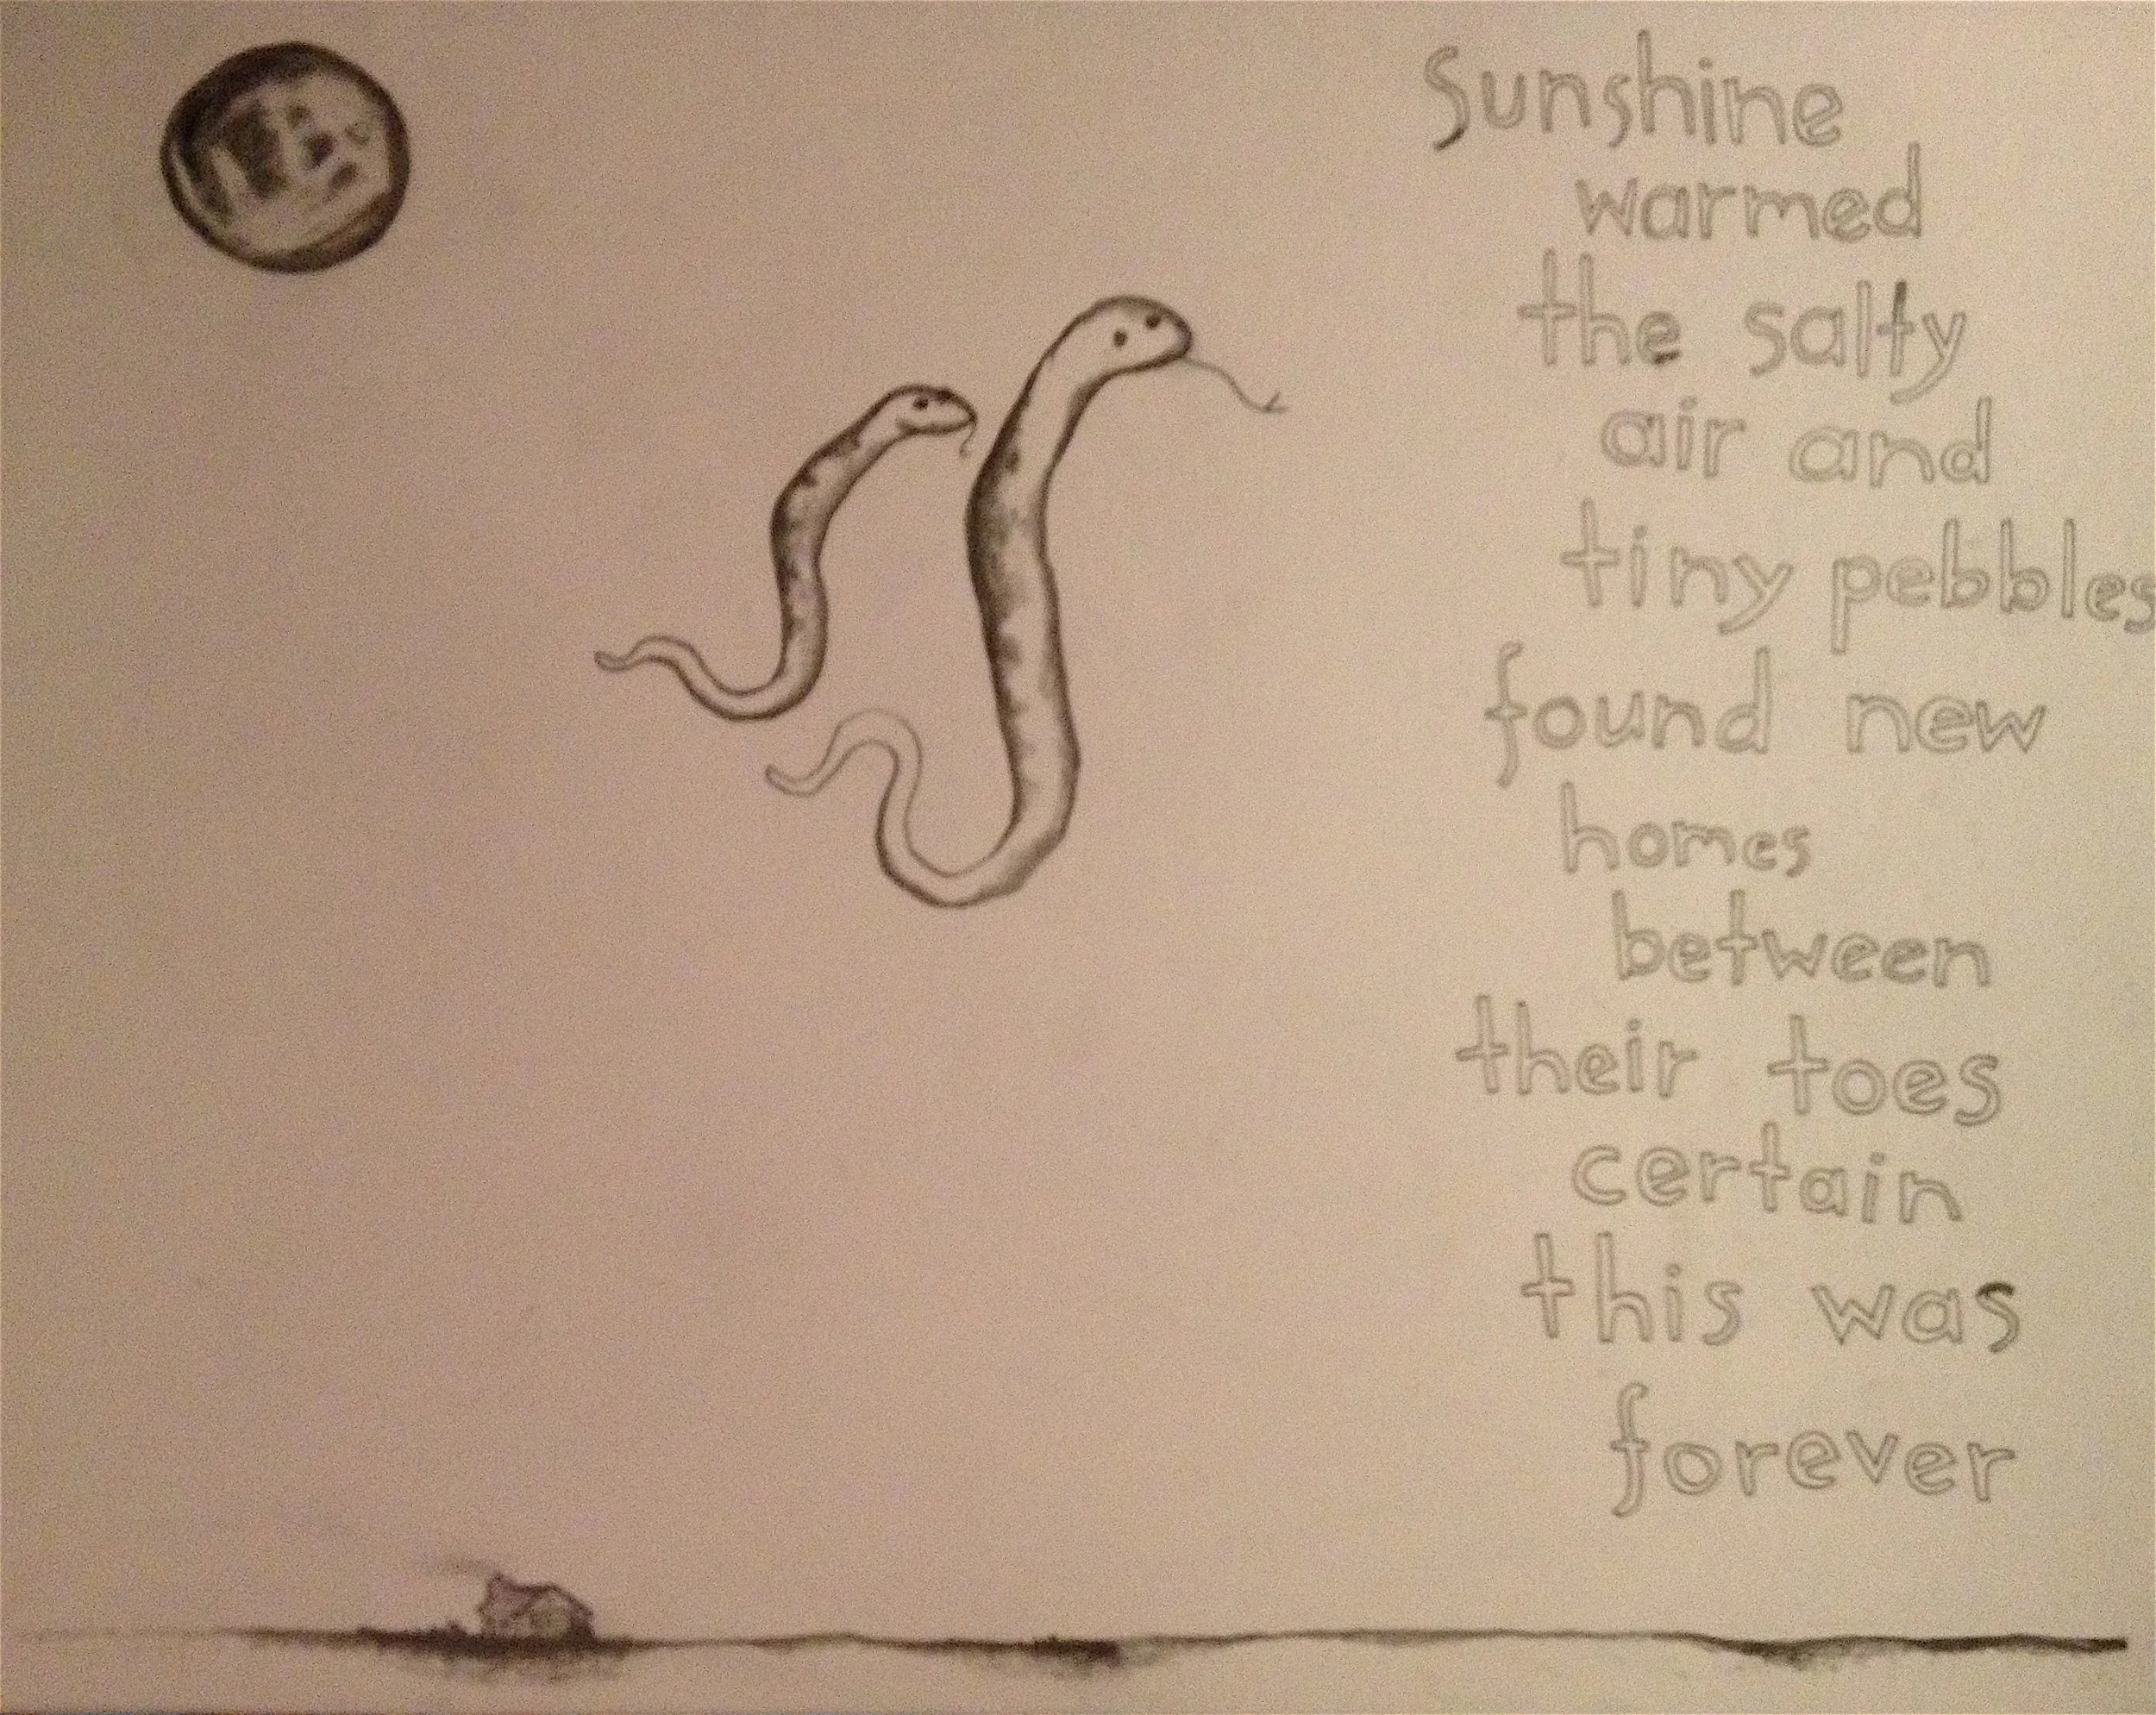 Sunshine
warmed
the salty
air and
tiny pebbles
found new
homes
between
their toes
certain
this was
forever